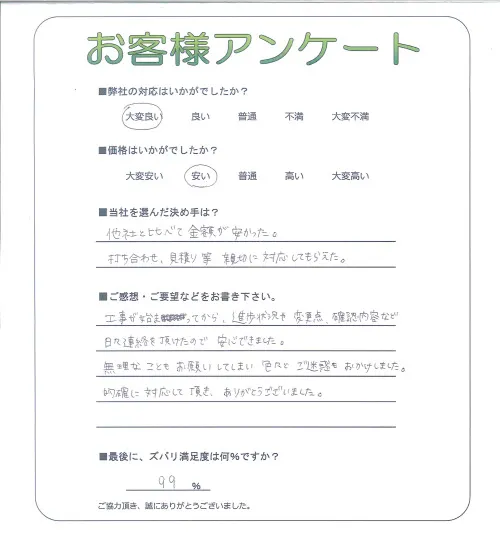 お客様アンケート
■弊社の対応はいかがでしたか？
大変良い 良い 普通 不満 大変不満
■価格はいかがでしたか？
大変安い 安い 普通 高い 大変高い
■当社を選んだ決め手は？
他社と比べて金額が安かった。
打ち合わせ、見積り等 親切に対応してもらえた。
■ご感想・ご要望などをお書き下さい。
工事が始まってから、進歩状況や変更点、確認内容など
日々連絡を頂けたので安心できました。
無理なこともお願いしてしまい色々とご迷惑をおかけしました。
的確に対応して頂き、ありがとうございました。
■最後に、ズバリ満足度は何%ですか？
99 %
ご協力頂き、誠にありがとうございました。